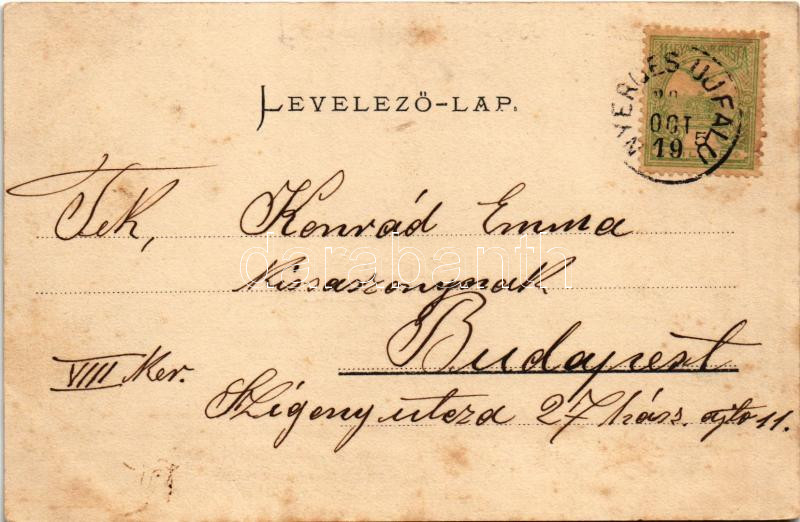 LEVELEZŐ-LAP.
MAGYAR KIR. POSTA
NYERGES UJFALU
OCT
19
Tek, Konrád Emma
kisasszonynak
darabanth
Budapest
VIII Ker.
Szigony utcza 27 ház. ajto 11.